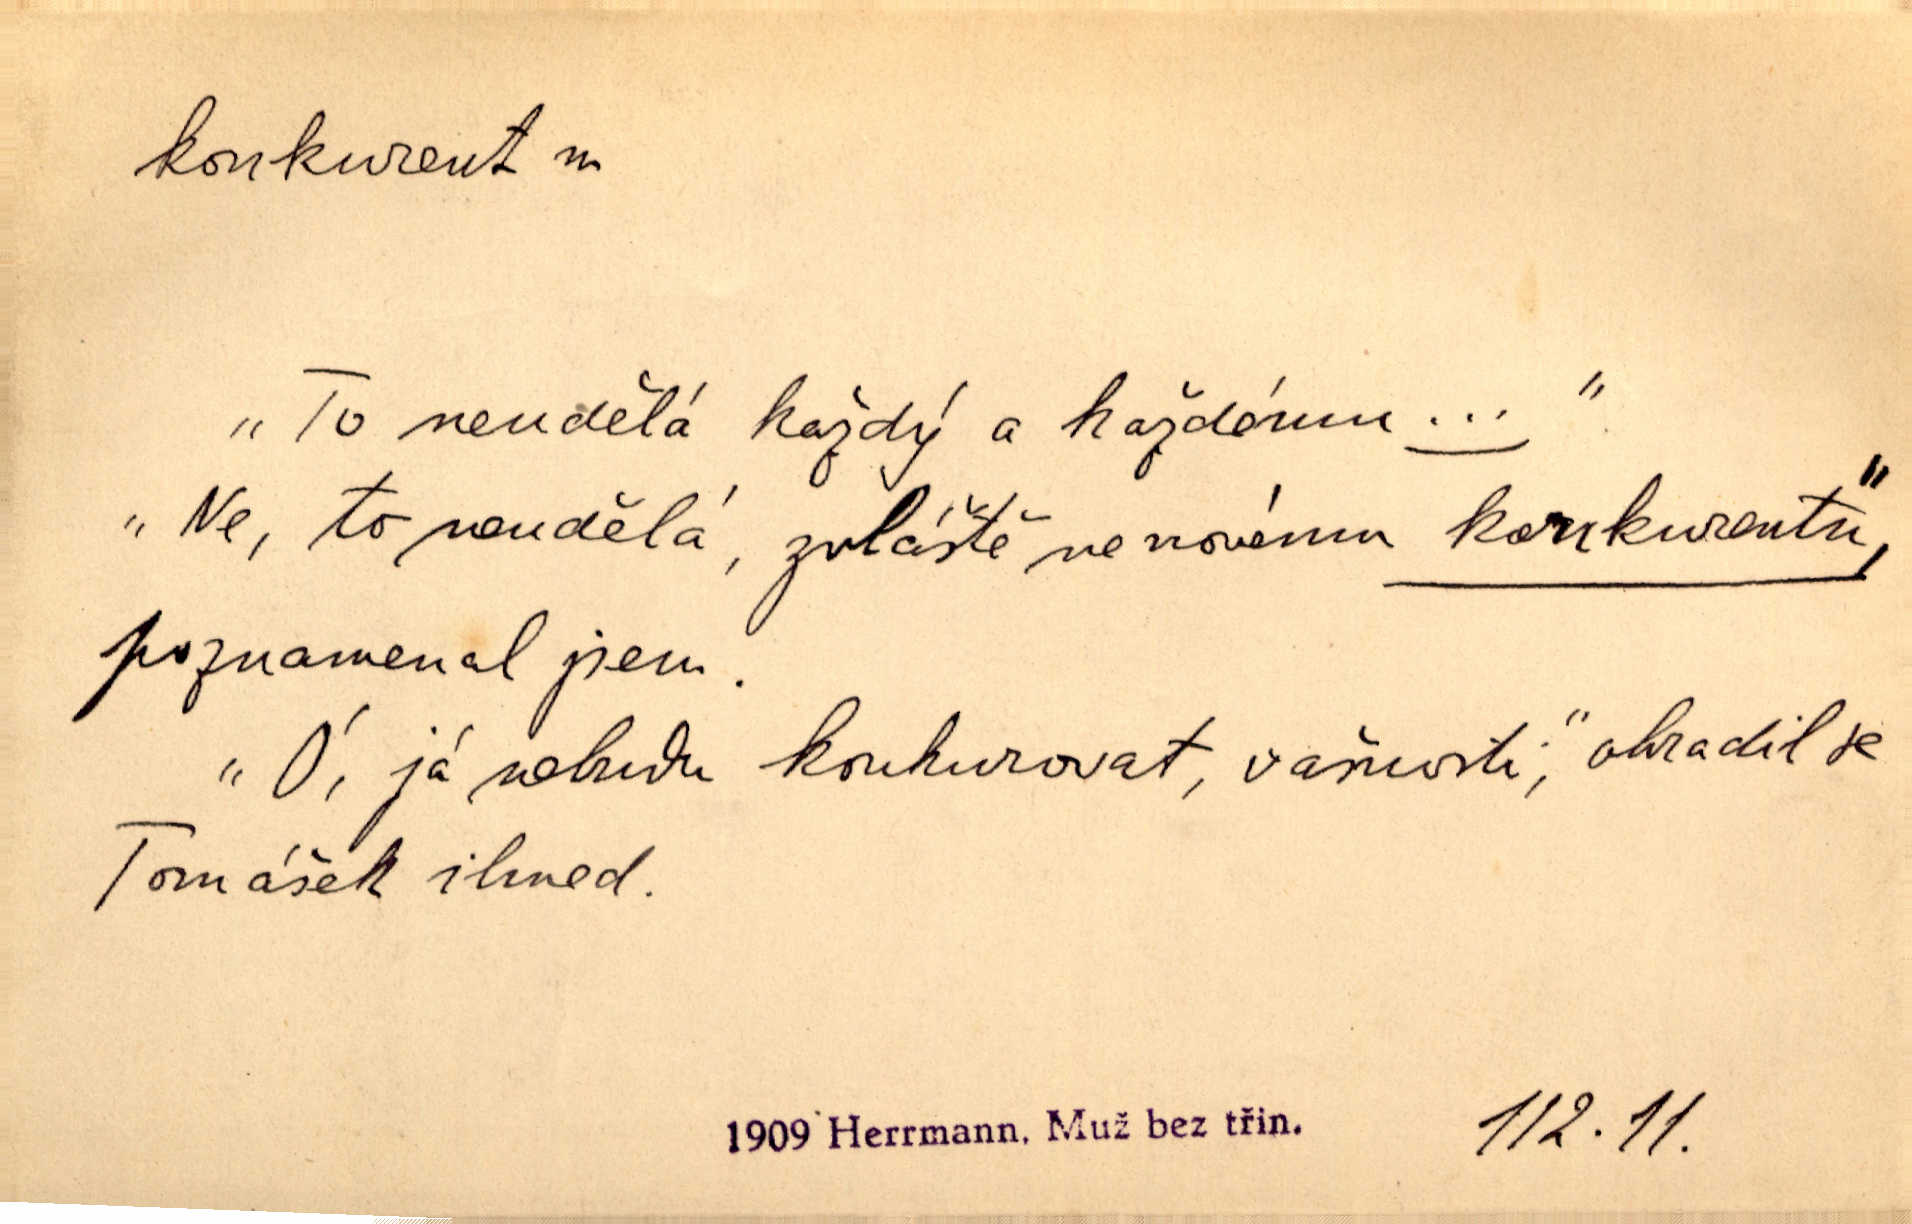 konkurent m
„To neudělá každý a každému ..."
„Ne, to neudělá, zvláště ne novému konkurentu",
poznamenal jsem.
„Ó, já nebudu konkurovat, vašnosti," ohradil se
Tomášek ihned.
1909 Herrmann, Muž bez třin. 112.11.